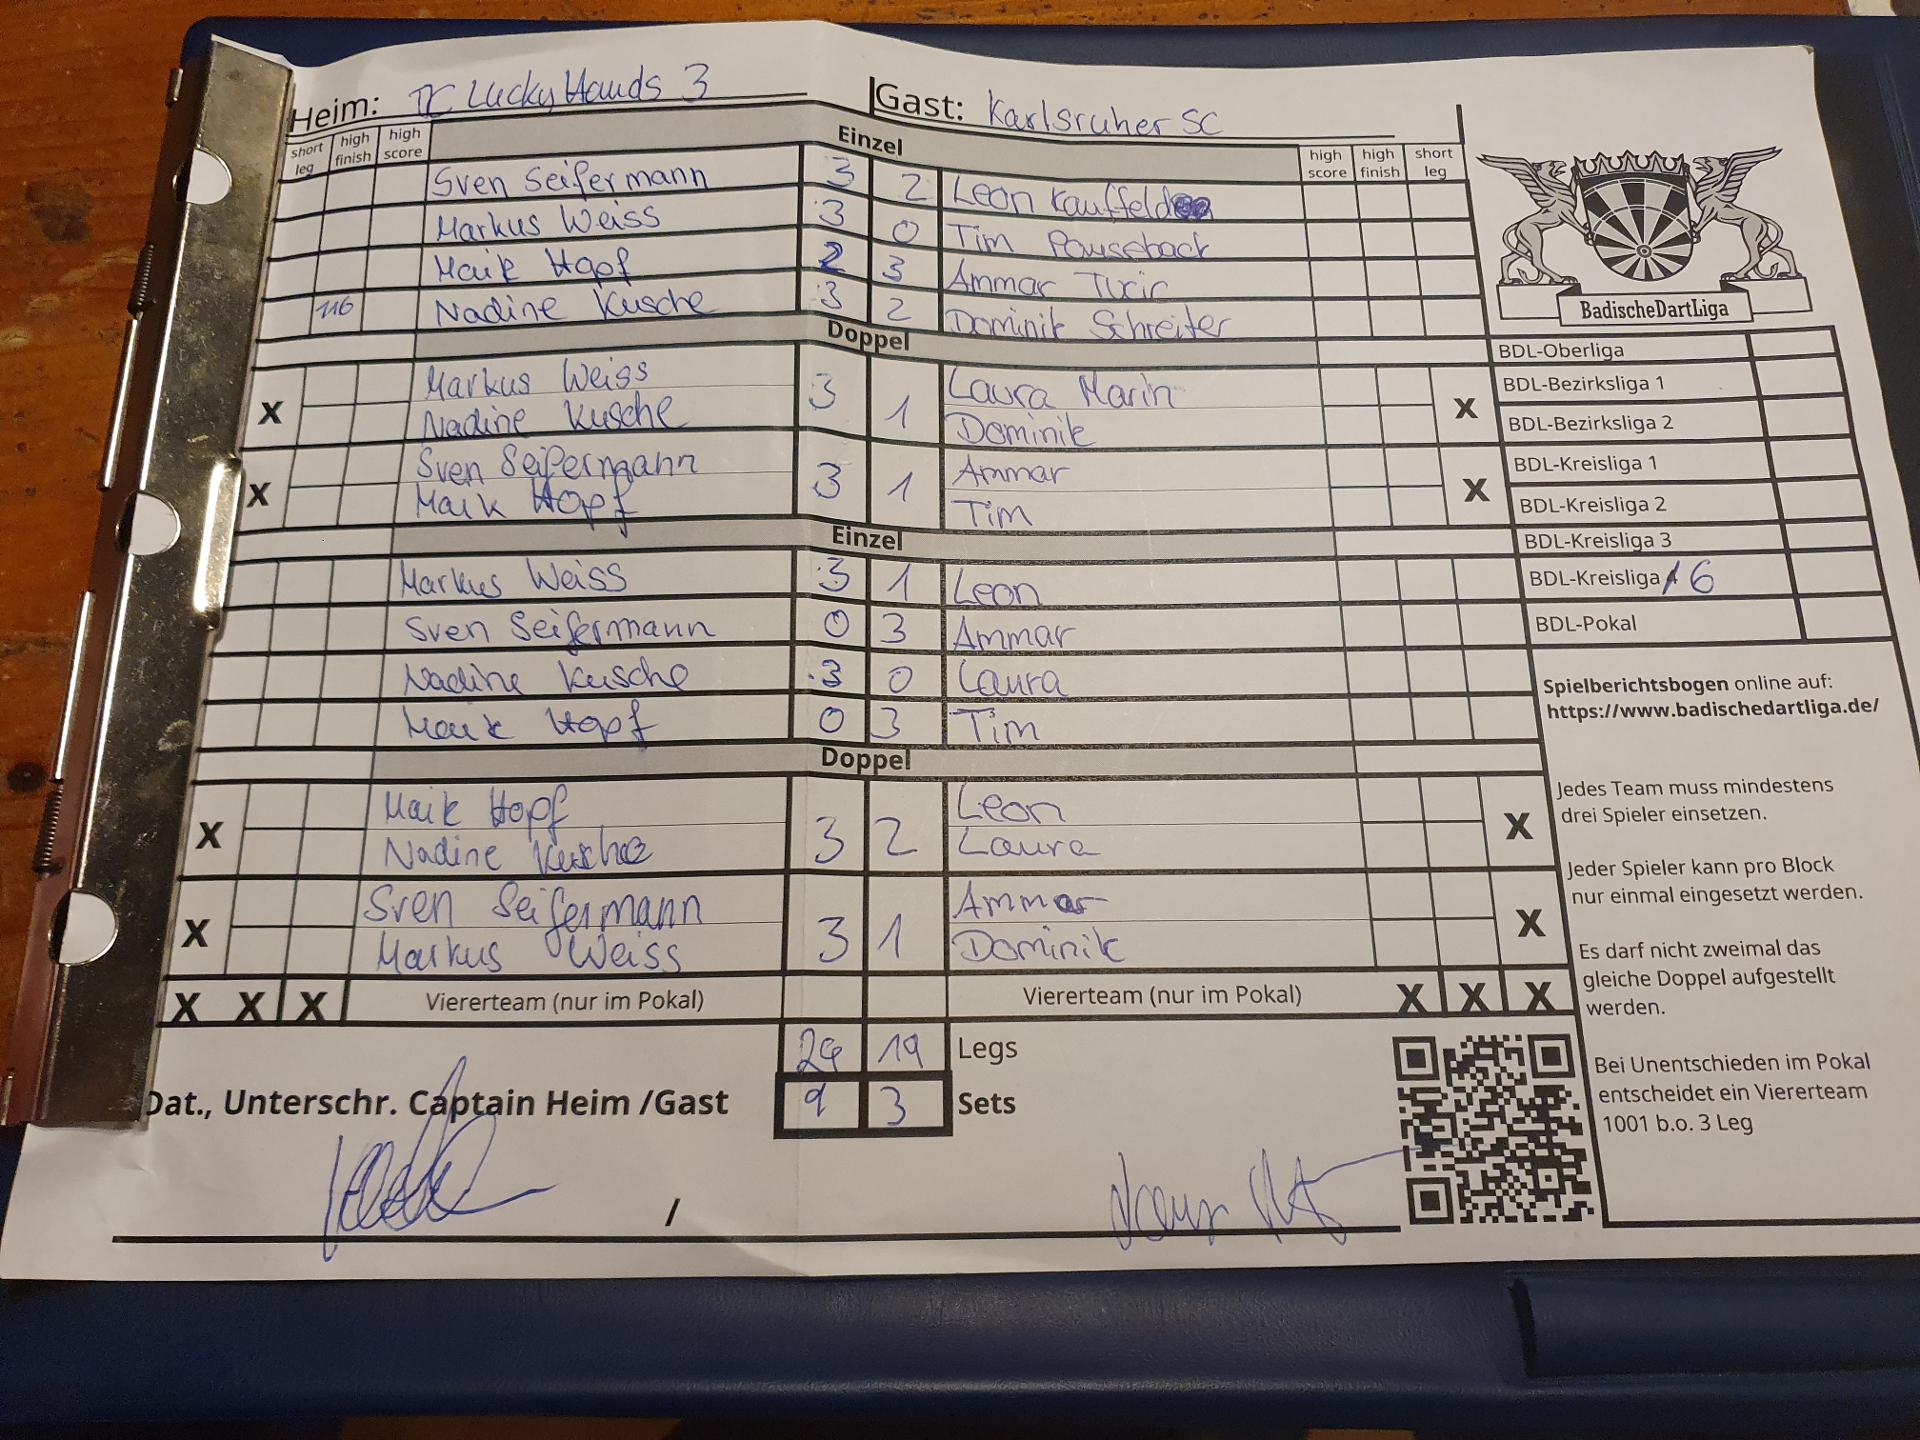 Heim: TC Lucky Hands 3 Gast: Karlsruher SC
short leg high finish high score Einzel high score high finish short leg
Sven Seifermann 3 2 Leon Kauffeld
Markus Weiss 3 0 Tim
Maik Hopf 2 3 Ammar
116 Nadine Kusche 3 2 Dominik Schreiter
Doppel
Markus Weiss 3 1 Laura Marin
X Nadine Kusche Dominik X
Sven Seifermann 3 1 Ammar
X Maik Hopf Tim X
Einzel
Markus Weiss 3 1 Leon
Sven Seifermann 0 3 Ammar
Nadine Kusche 3 0 Laura
Maik Hopf 0 3 Tim
Doppel
Maik Hopf 3 2 Leon
X Nadine Kusche Laura X
Sven Seifermann 3 1 Ammar
X Markus Weiss Dominik X
X X X Viererteam (nur im Pokal) Viererteam (nur im Pokal) X X X
19 Legs
Dat., Unterschr. Captain Heim /Gast 9 3 Sets
/
BadischeDartLiga
BDL-Oberliga
BDL-Bezirksliga 1
BDL-Bezirksliga 2
BDL-Kreisliga 1
BDL-Kreisliga 2
BDL-Kreisliga 3
BDL-Kreisliga 6
BDL-Pokal
Spielberichtsbogen online auf:
https://www.badischedartliga.de/
Jedes Team muss mindestens
drei Spieler einsetzen.
Jeder Spieler kann pro Block
nur einmal eingesetzt werden.
Es darf nicht zweimal das
gleiche Doppel aufgestellt
werden.
Bei Unentschieden im Pokal
entscheidet ein Viererteam
1001 b.o. 3 Leg